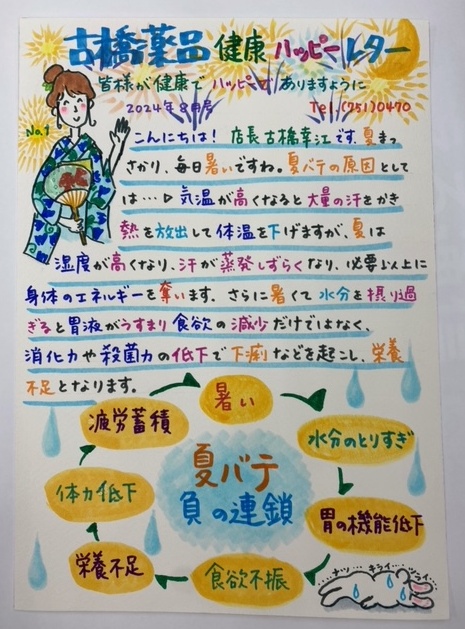 古橋薬品 健康 ハッピーレター
皆様が健康で ハッピーで ありますように
2024年8月号 Tel (751)0470
No.1
こんにちは! 店長 古橋幸江です。夏まっ
さかり、毎日暑いですね。夏バテの原因として
は…▷ 気温が高くなると大量の汗をかき
熱を放出して体温を下げますが、夏は
湿度が高くなり、汗が蒸発しずらくなり、必要以上に
身体のエネルギーを奪います。さらに暑くて水分を摂り過
ぎると胃液がうすまり食欲の減少だけではなく、
消化力や殺菌力の低下で下痢などを起こし、栄養
不足となります。
暑い
水分のとりすぎ
胃の機能低下
食欲不振
栄養不足
体力低下
疲労蓄積
夏バテ
負の連鎖
ナツ… キライ…